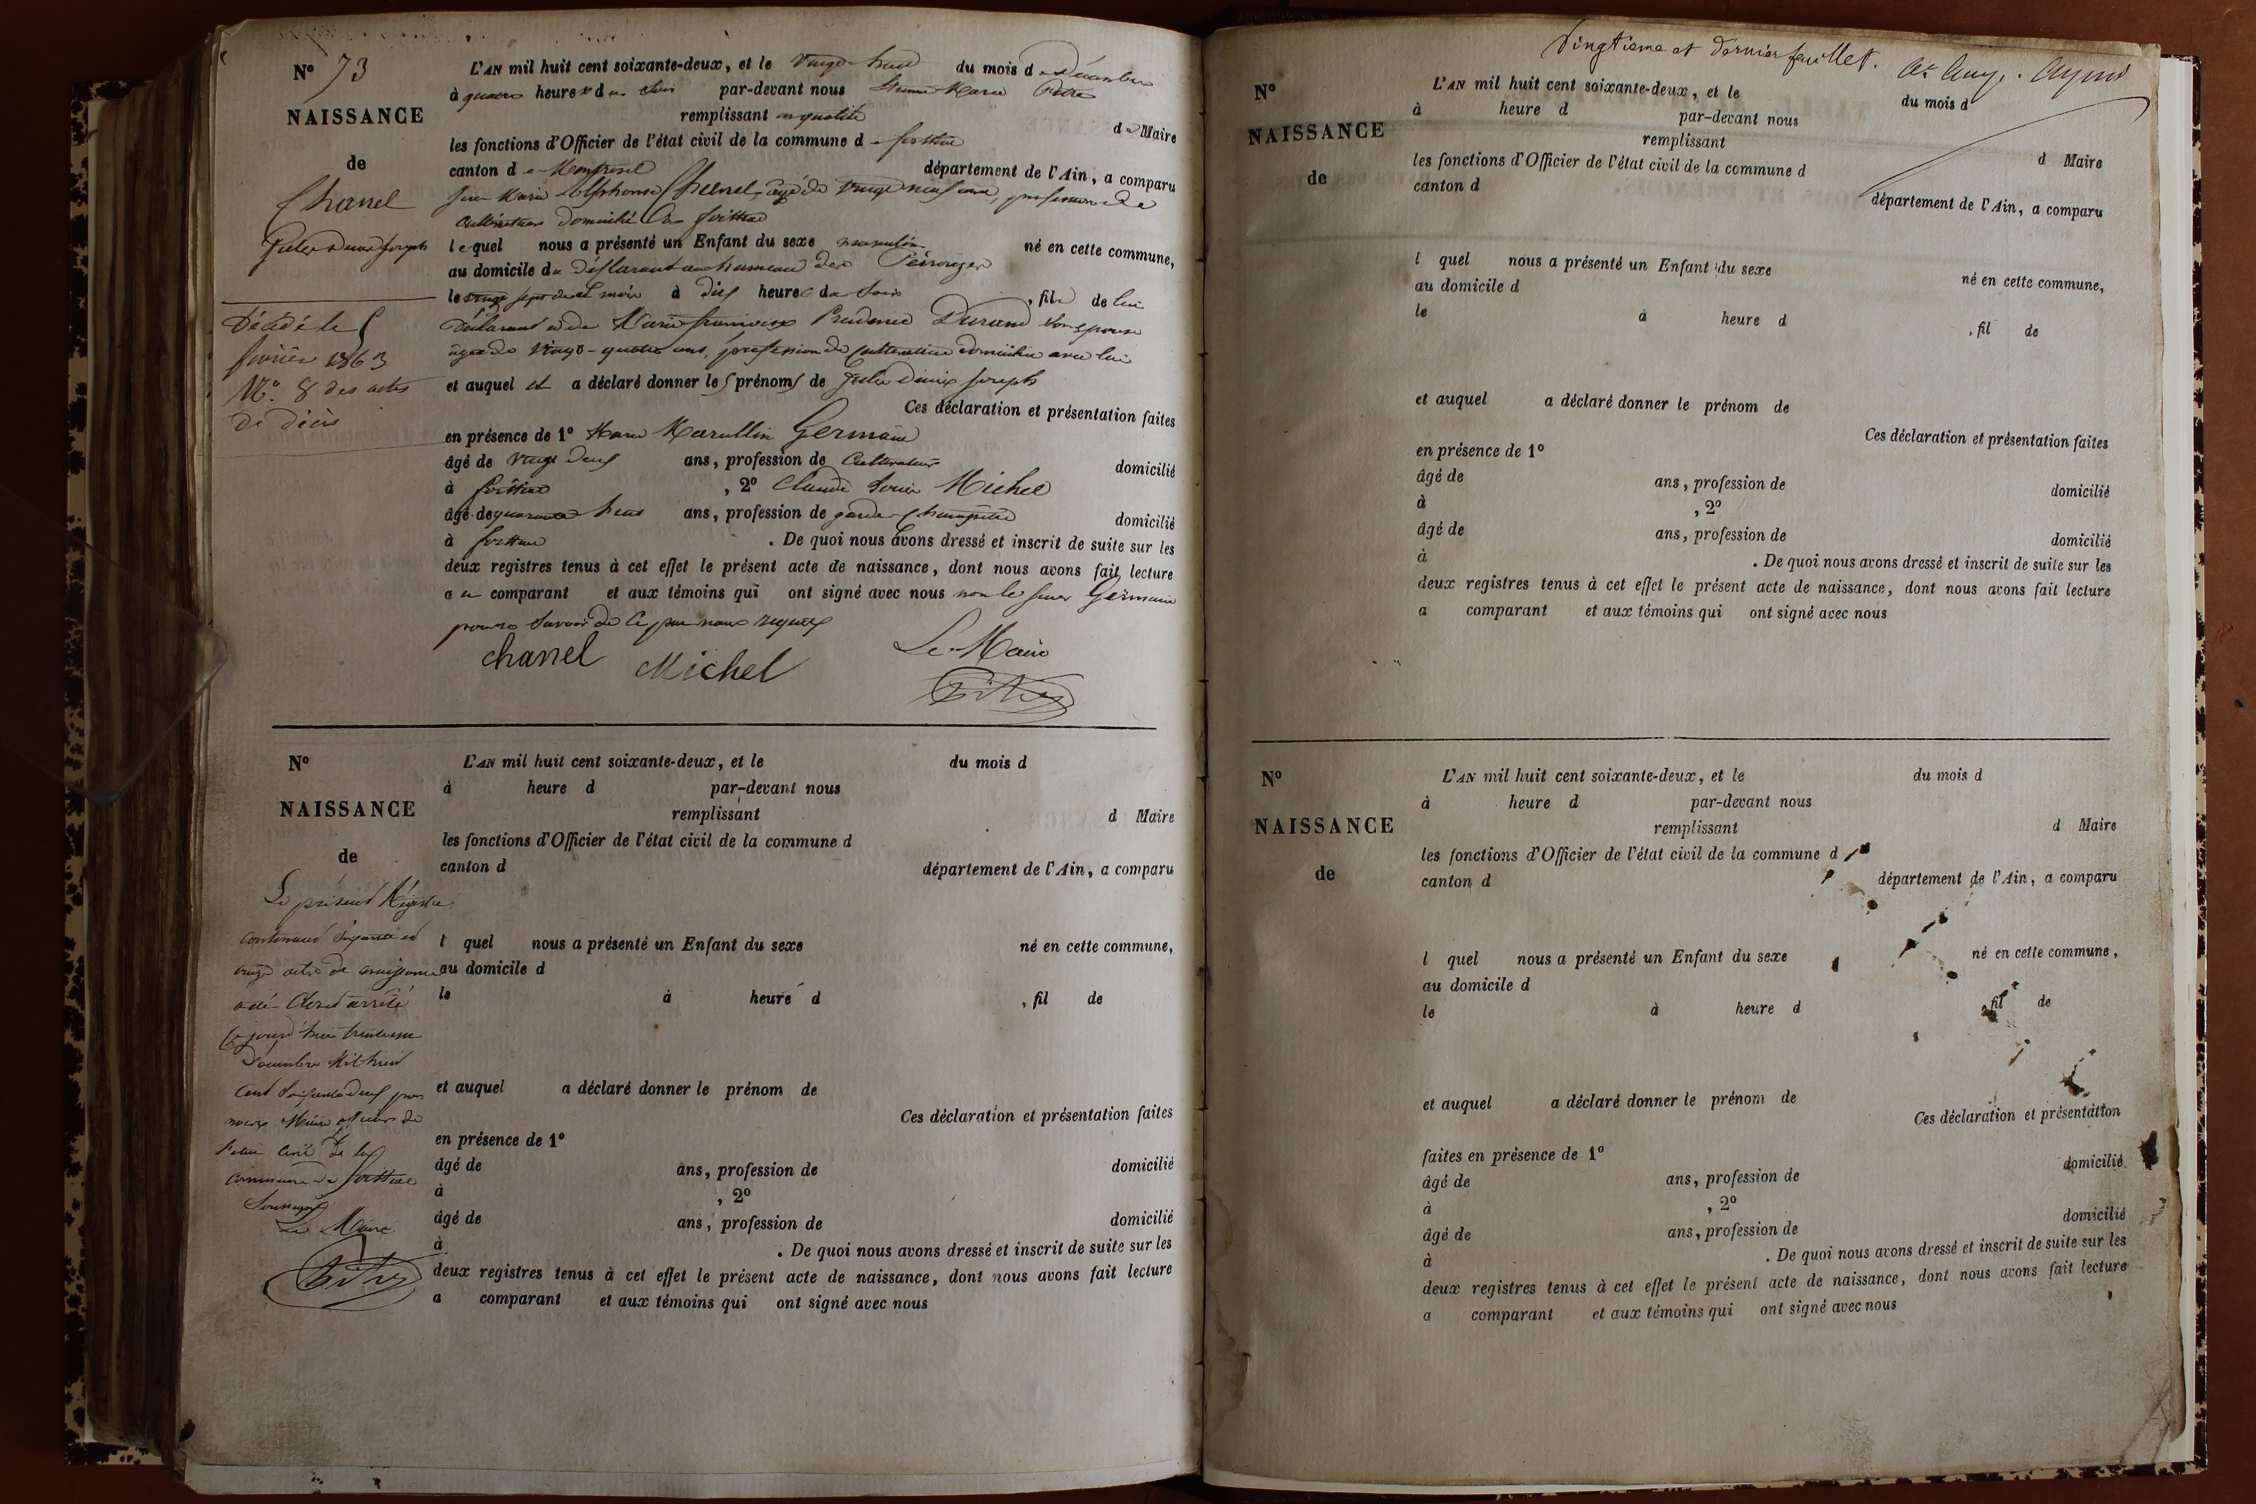 N° 73
NAISSANCE
de
Chanel
Jules Denis Joseph
Décédé le 5
février 1863
N° 8 des actes
de décès
L'AN mil huit cent soixante-deux, et le vingt-huit du mois de Décembre
à quatre heures du soir par-devant nous Marie
remplissant en qualité de Maire
les fonctions d'Officier de l'état civil de la commune de
canton de Montrevel département de l'Ain, a comparu
Marie Alphonse Chanel, âgé de vingt neuf ans, profession de
cultivateur domicilié à
lequel nous a présenté un Enfant du sexe masculin né en cette commune,
au domicile du déclarant au hameau des
le vingt sept dudit mois à dix heures du soir, fils de lui
déclarant et de Marie françoise Prudence Durand son épouse
âgée de vingt-quatre ans, profession de cultivatrice domiciliée avec lui
et auquel il a déclaré donner les prénoms de Jules Denis Joseph
Ces déclaration et présentation faites
en présence de 1° Germain
âgé de vingt deux ans, profession de cultivateur domicilié
à , 2° Claude Michel
âgé de quarante huit ans, profession de garde-champêtre domicilié
à . De quoi nous avons dressé et inscrit de suite sur les
deux registres tenus à cet effet le présent acte de naissance, dont nous avons fait lecture
au comparant et aux témoins qui ont signé avec nous non le sieur Germain
pour ne savoir de ce par nous requis
chanel Michel Le Maire
N°
NAISSANCE
de
L'AN mil huit cent soixante-deux, et le du mois d
à heure d par-devant nous
remplissant d Maire
les fonctions d'Officier de l'état civil de la commune d
canton d département de l'Ain, a comparu
l quel nous a présenté un Enfant du sexe né en cette commune,
au domicile d
le à heure d , fil de
et auquel a déclaré donner le prénom de
Ces déclaration et présentation faites
en présence de 1°
âgé de ans, profession de domicilié
à , 2°
âgé de ans, profession de domicilié
à . De quoi nous avons dressé et inscrit de suite sur les
deux registres tenus à cet effet le présent acte de naissance, dont nous avons fait lecture
a comparant et aux témoins qui ont signé avec nous
Le présent Régistre
contenant soixante et
treize actes de naissance
a été clos et arrêté
ce jourd'hui trente un
Décembre Mil huit
cent soixante deux par
nous Maire officier de
l'état civil de la
commune de
soussigné
Le Maire
Vingtieme et dernier feuillet.
N°
NAISSANCE
de
L'AN mil huit cent soixante-deux, et le du mois d
à heure d par-devant nous
remplissant d Maire
les fonctions d'Officier de l'état civil de la commune d
canton d département de l'Ain, a comparu
l quel nous a présenté un Enfant du sexe né en cette commune,
au domicile d
le à heure d , fil de
et auquel a déclaré donner le prénom de
Ces déclaration et présentation faites
en présence de 1°
âgé de ans, profession de domicilié
à , 2°
âgé de ans, profession de domicilié
à . De quoi nous avons dressé et inscrit de suite sur les
deux registres tenus à cet effet le présent acte de naissance, dont nous avons fait lecture
a comparant et aux témoins qui ont signé avec nous
N°
NAISSANCE
de
L'AN mil huit cent soixante-deux, et le du mois d
à heure d par-devant nous
remplissant d Maire
les fonctions d'Officier de l'état civil de la commune d
canton d département de l'Ain, a comparu
l quel nous a présenté un Enfant du sexe né en cette commune,
au domicile d
le à heure d , fil de
et auquel a déclaré donner le prénom de
Ces déclaration et présentation
faites en présence de 1°
âgé de ans, profession de domicilié
à , 2°
âgé de ans, profession de domicilié
à . De quoi nous avons dressé et inscrit de suite sur les
deux registres tenus à cet effet le présent acte de naissance, dont nous avons fait lecture
a comparant et aux témoins qui ont signé avec nous